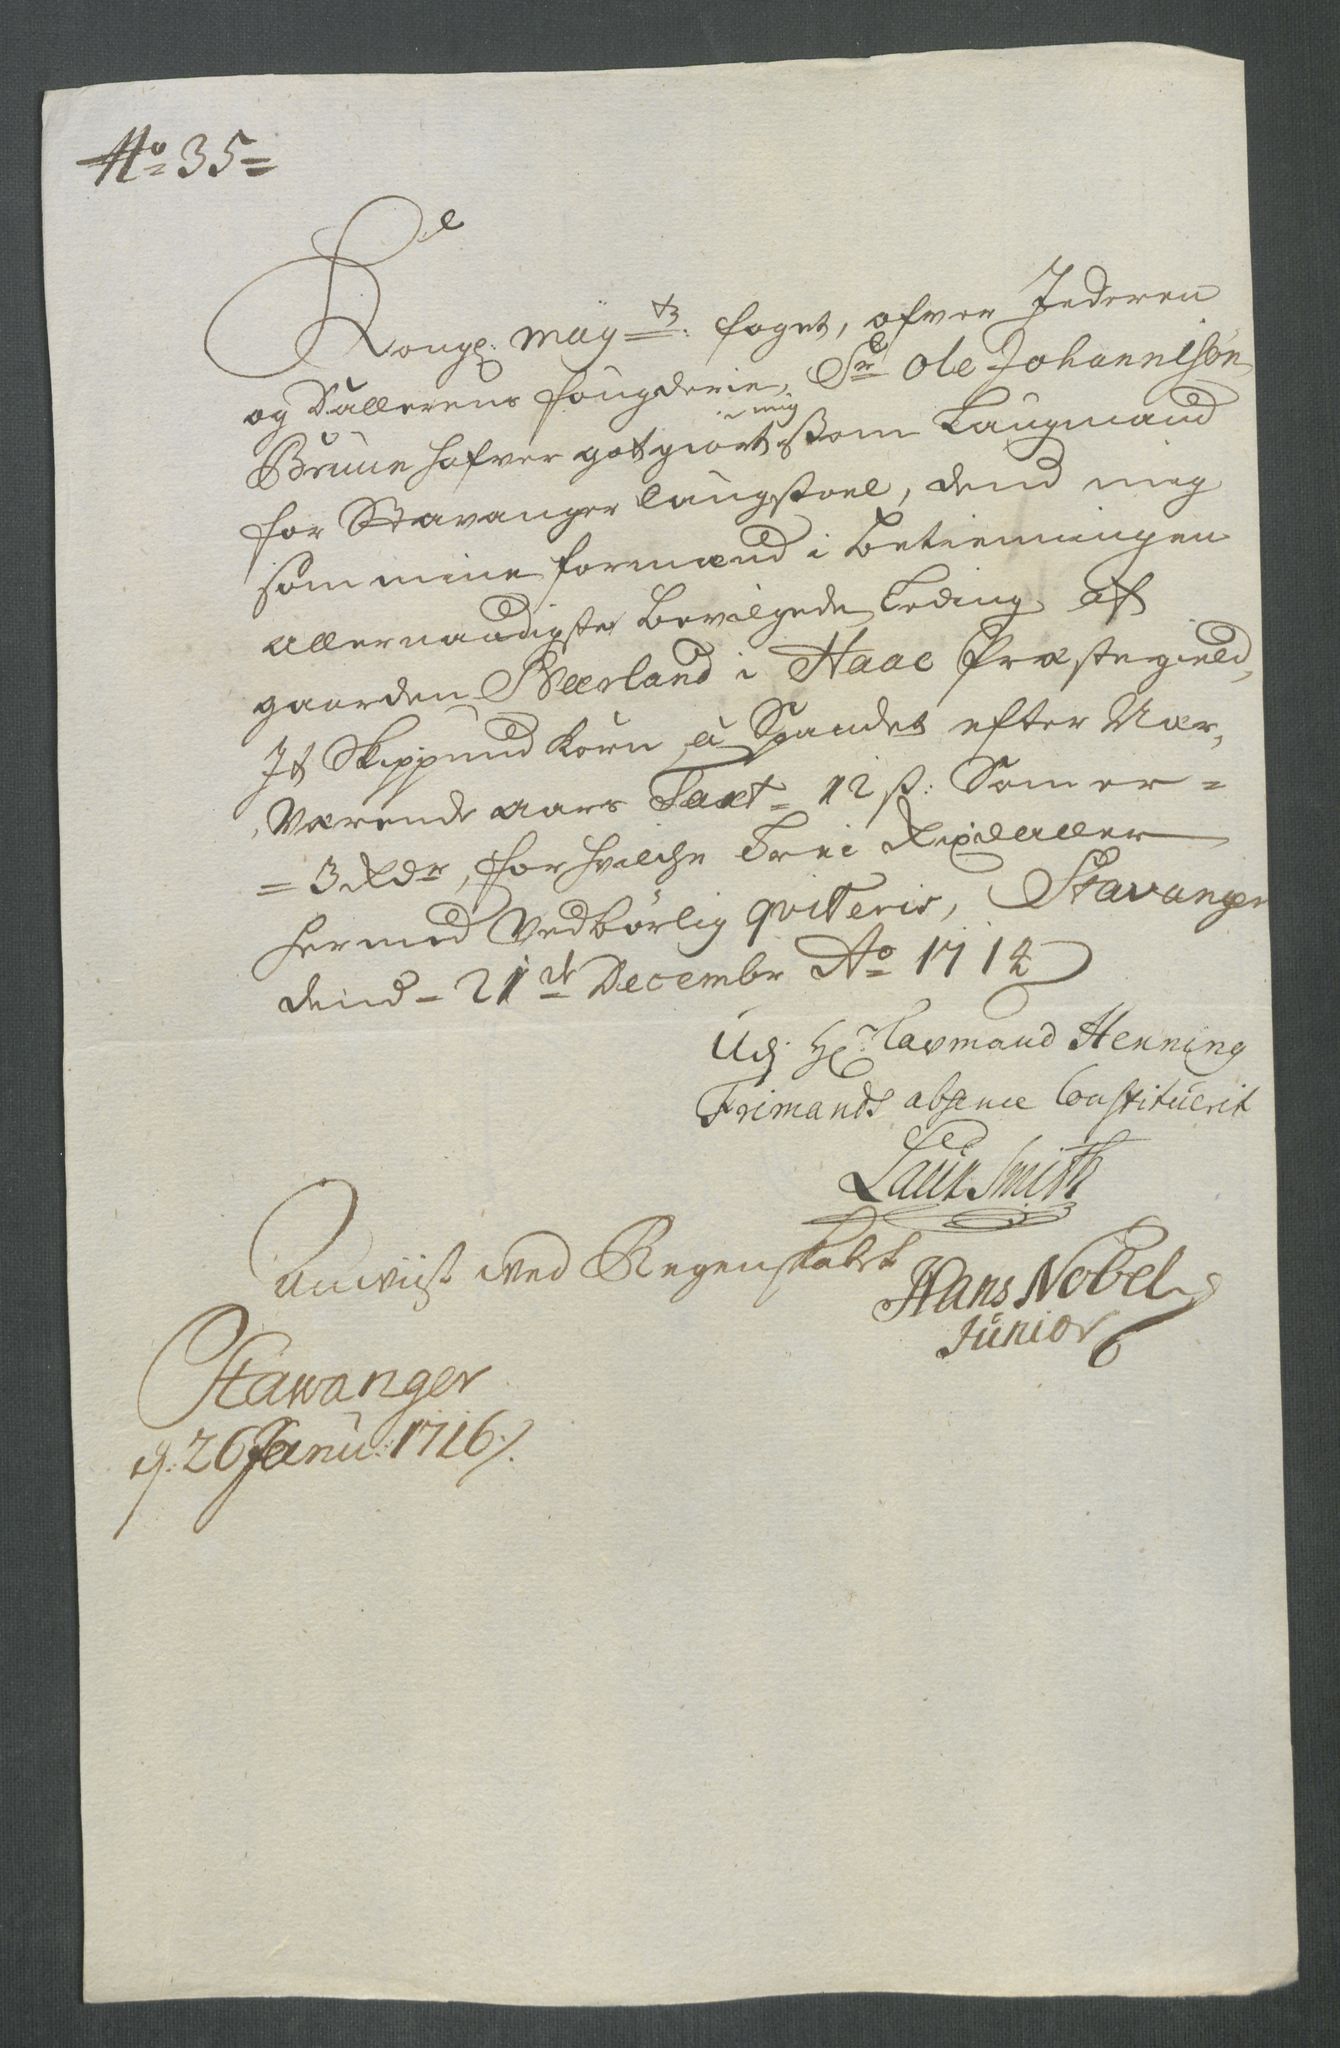 No. 35=
Kongl. May=tz. foget, ofver Jederen
og Dallerens fougderie, Sr Ole Johannesøn
Brune hafver gotgiort mig som Laugmand
for Stavanger laugstoel, dend mig
som mine formænd i betienningen
allernaadigste bevilgede Leding af
gaarden Bærland i Haae Præstegield,
It Skippund Korn, á Spandet efter Nær,
værende aars Taxt= 12 ß: Som er=
=3 Rdr, for hvilche Trei Rixdaller
hermed Vedbørlig qviteris, Stavanger
dend= 21de Decembr Ao 1714
Udj Hr Laumand Henning
Frimands absence Constituerit
Laur Smith
Anviist ved Regenskabet
Hans Nobel
Junior
Stawanger
d. 26 Janu: 1716.